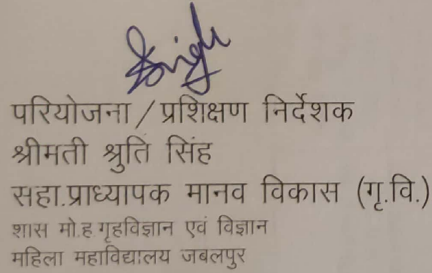 Singh
परियोजना / प्रशिक्षण निर्देशक
श्रीमती श्रुति सिंह
सहा.प्राध्यापक मानव विकास (गृ.वि.)
शास मो.ह गृहविज्ञान एवं विज्ञान
महिला महाविद्यालय जबलपुर